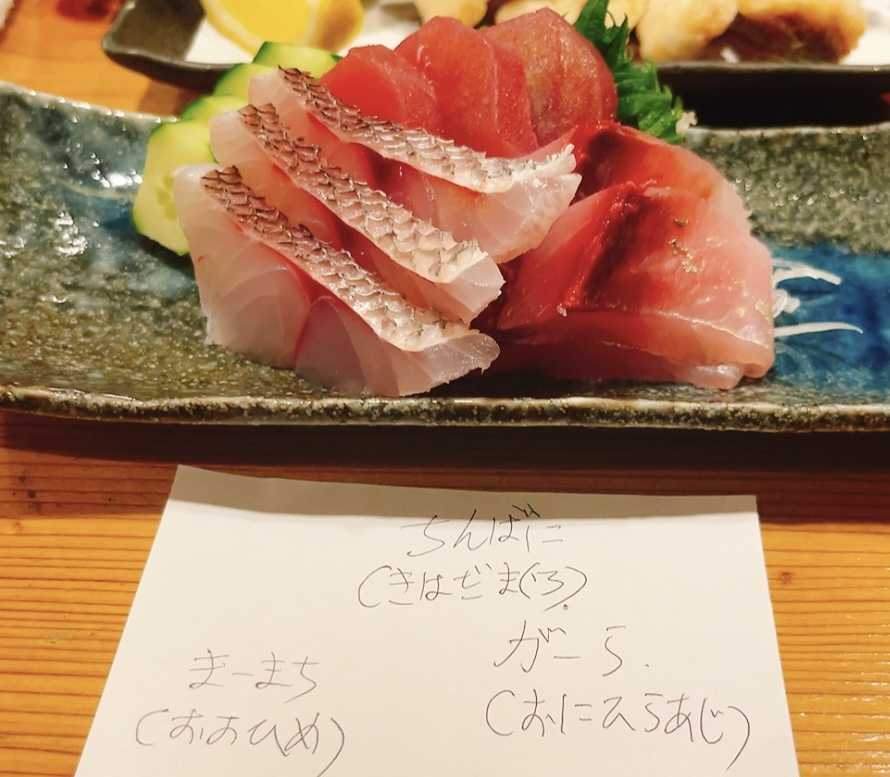 ちんばに
(きはだまぐろ)
まーまち
(おおひめ)
がーら
(おにひらあじ)